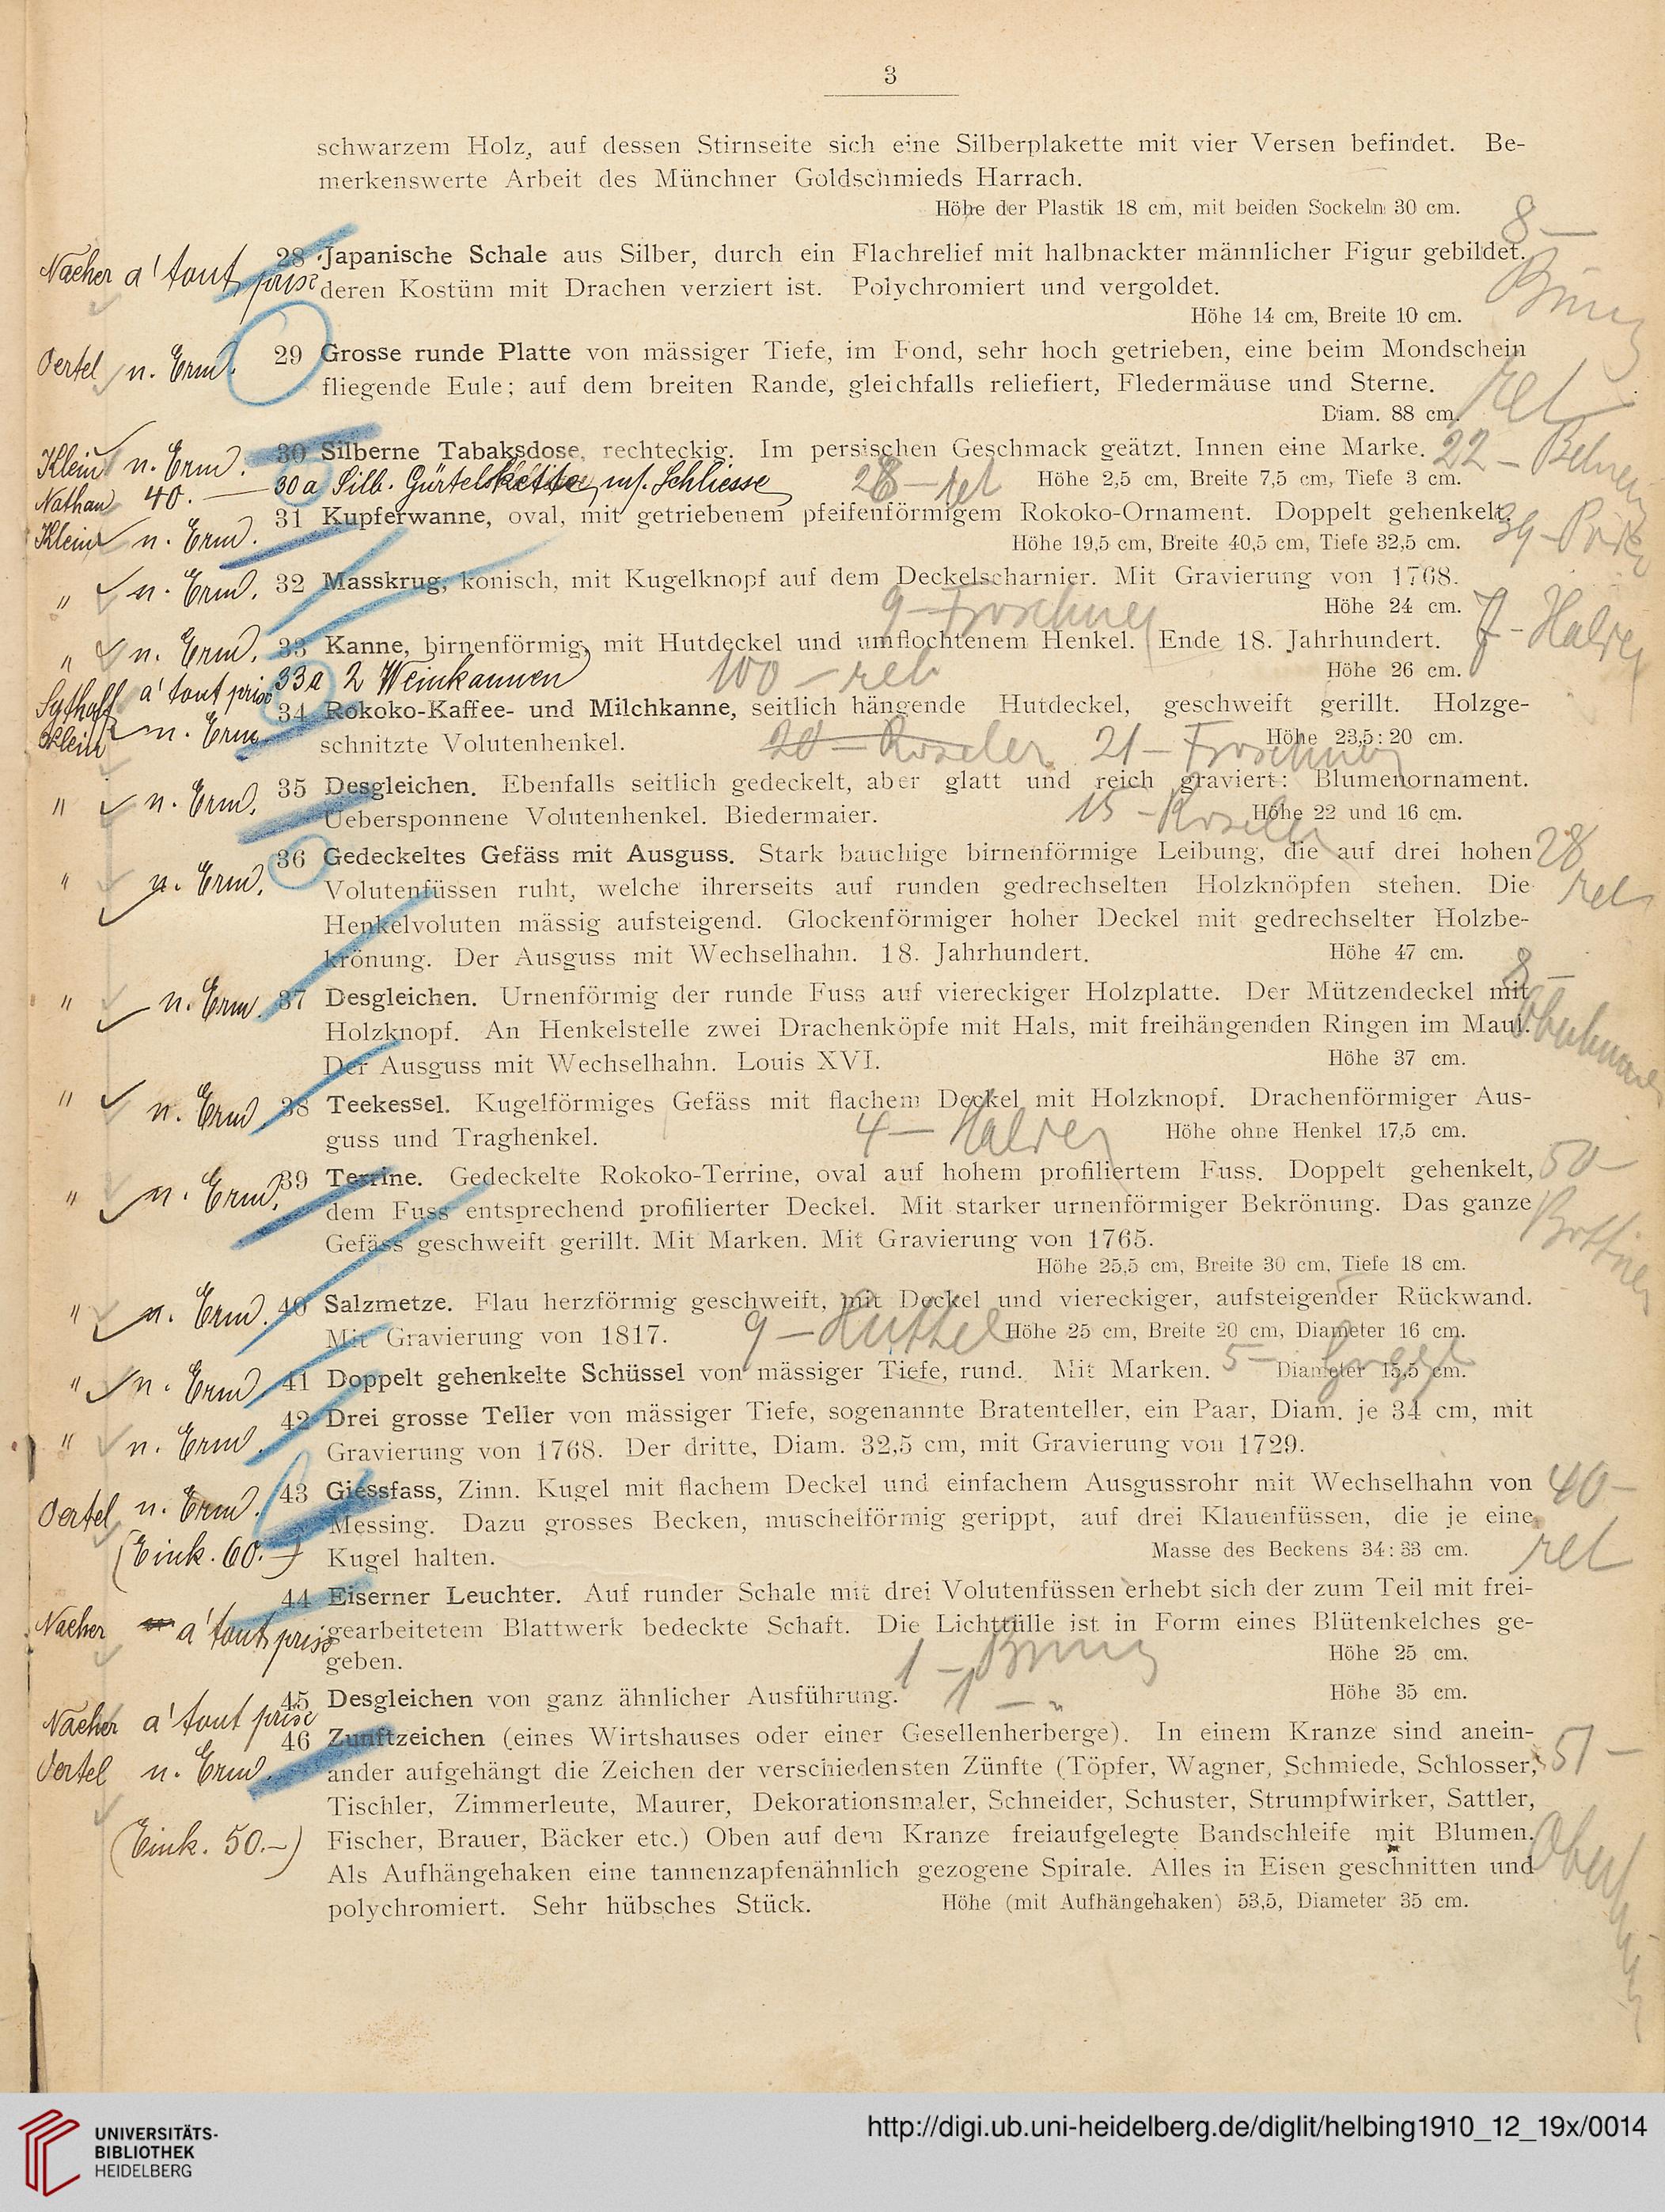 3
schwarzem Holz, auf dessen Stirnseite sich eine Silberplakette mit vier Versen befindet. Be-
merkenswerte Arbeit des Münchner Goldschmieds Harrach.
Höhe der Plastik 18 cm, mit beiden Sockeln 30 cm.
8 —
Nacher a' tout prise
28 Japanische Schale aus Silber, durch ein Flachrelief mit halbnackter männlicher Figur gebildet,
deren Kostüm mit Drachen verziert ist. Polychromiert und vergoldet.
Höhe 14 cm, Breite 10 cm.
Oertel n. Erm.
29 Grosse runde Platte von mässiger Tiefe, im Fond, sehr hoch getrieben, eine beim Mondschein
fliegende Eule; auf dem breiten Rande, gleichfalls reliefiert, Fledermäuse und Sterne.
Diam. 88 cm.
ret
Klein n. Erm.
30 Silberne Tabaksdose, rechteckig. Im persischen Geschmack geätzt. Innen eine Marke.
22 –
Höhe 2,5 cm, Breite 7,5 cm, Tiefe 3 cm.
Nathan 40. — 30a Silb. Gürtelkette m. Schliesse
28 – ret
Klein n. Erm.
31 Kupferwanne, oval, mit getriebenem pfeifenförmigem Rokoko-Ornament. Doppelt gehenkelt.
39 –
Höhe 19,5 cm, Breite 40,5 cm, Tiefe 32,5 cm.
" n. Erm.
32 Masskrug, konisch, mit Kugelknopf auf dem Deckelscharnier. Mit Gravierung von 1768.
Höhe 24 cm.
9 – Froschner
7 – Halder
" n. Erm.
33 Kanne, birnenförmig, mit Hutdeckel und umflochtenem Henkel. Ende 18. Jahrhundert.
Höhe 26 cm.
Sythoff a' tout prise 33a 2 Weinkannen
100 – ret
Klein n. Erm.
34 Rokoko-Kaffee- und Milchkanne, seitlich hängende Hutdeckel, geschweift gerillt. Holzge-
schnitzte Volutenhenkel.
Höhe 23,5:20 cm.
20 – Roseler 21 – Froschner
" n. Erm.
35 Desgleichen. Ebenfalls seitlich gedeckelt, aber glatt und reich graviert: Blumenornament.
Uebersponnene Volutenhenkel. Biedermaier.
Höhe 22 und 16 cm.
15 – Roseler
" n. Erm.
36 Gedeckeltes Gefäss mit Ausguss. Stark bauchige birnenförmige Leibung, die auf drei hohen
28 ret
Volutenfüssen ruht, welche ihrerseits auf runden gedrechselten Holzknöpfen stehen. Die
Henkelvoluten mässig aufsteigend. Glockenförmiger hoher Deckel mit gedrechselter Holzbe-
krönung. Der Ausguss mit Wechselhahn. 18. Jahrhundert.
Höhe 47 cm.
8 –
" n. Erm.
37 Desgleichen. Urnenförmig der runde Fuss auf viereckiger Holzplatte. Der Mützendeckel mit
Holzknopf. An Henkelstelle zwei Drachenköpfe mit Hals, mit freihängenden Ringen im Maul.
Der Ausguss mit Wechselhahn. Louis XVI.
Höhe 37 cm.
" n. Erm.
38 Teekessel. Kugelförmiges Gefäss mit flachem Deckel mit Holzknopf. Drachenförmiger Aus-
guss und Traghenkel.
Höhe ohne Henkel 17,5 cm.
4 – Halder
" n. Erm.
39 Terrine. Gedeckelte Rokoko-Terrine, oval auf hohem profiliertem Fuss. Doppelt gehenkelt,
50 –
dem Fuss entsprechend profilierter Deckel. Mit starker urnenförmiger Bekrönung. Das ganze
Gefäss geschweift gerillt. Mit Marken. Mit Gravierung von 1765.
Höhe 25,5 cm, Breite 30 cm, Tiefe 18 cm.
" n. Erm.
40 Salzmetze. Flau herzförmig geschweift, mit Deckel und viereckiger, aufsteigender Rückwand.
Mit Gravierung von 1817.
Höhe 25 cm, Breite 20 cm, Diameter 16 cm.
9 –
" n. Erm.
41 Doppelt gehenkelte Schüssel von mässiger Tiefe, rund. Mit Marken.
5 –
Diameter 15,5 cm.
" n. Erm.
42 Drei grosse Teller von mässiger Tiefe, sogenannte Bratenteller, ein Paar, Diam. je 34 cm, mit
Gravierung von 1768. Der dritte, Diam. 32,5 cm, mit Gravierung von 1729.
Oertel n. Erm.
(Eink. 60.–)
43 Giessfass, Zinn. Kugel mit flachem Deckel und einfachem Ausgussrohr mit Wechselhahn von
40 – ret
Messing. Dazu grosses Becken, muschelförmig gerippt, auf drei Klauenfüssen, die je eine
Kugel halten.
Masse des Beckens 34:33 cm.
Nacher a' tout prise
44 Eiserner Leuchter. Auf runder Schale mit drei Volutenfüssen erhebt sich der zum Teil mit frei-
gearbeitetem Blattwerk bedeckte Schaft. Die Lichttülle ist in Form eines Blütenkelches ge-
geben.
Höhe 25 cm.
1 –
Nacher a' tout prise
45 Desgleichen von ganz ähnlicher Ausführung.
1 – "
Höhe 35 cm.
Oertel n. Erm.
(Eink. 50.–)
46 Zunftzeichen (eines Wirtshauses oder einer Gesellenherberge). In einem Kranze sind anein-
51 –
ander aufgehängt die Zeichen der verschiedensten Zünfte (Töpfer, Wagner, Schmiede, Schlosser,
Tischler, Zimmerleute, Maurer, Dekorationsmaler, Schneider, Schuster, Strumpfwirker, Sattler,
Fischer, Brauer, Bäcker etc.) Oben auf dem Kranze freiaufgelegte Bandschleife mit Blumen.
Als Aufhängehaken eine tannenzapfenähnlich gezogene Spirale. Alles in Eisen geschnitten und
polychromiert. Sehr hübsches Stück.
Höhe (mit Aufhängehaken) 53,5, Diameter 35 cm.
UNIVERSITÄTS-
BIBLIOTHEK
HEIDELBERG
http://digi.ub.uni-heidelberg.de/diglit/helbing1910_12_19x/0014